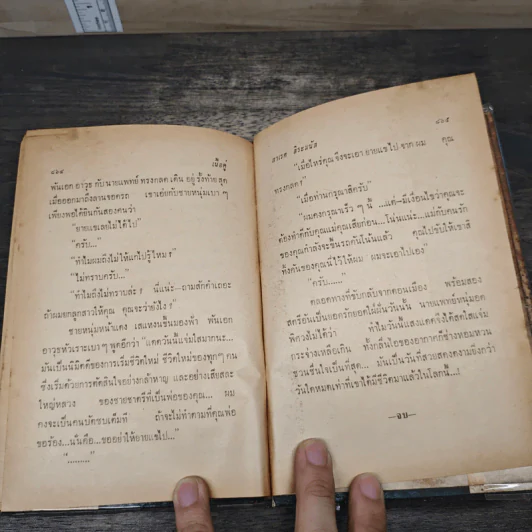 ๔๖๔
เนื้อคู่
พันเอก อาวุธ กับ นายแพทย์ ทรงกลด เดิน อยู่ รั้งท้าย สุด
เมื่อออกมาถึงลานจอดรถ เขาเอ่ยกับชายหนุ่มเบา ๆ
เพียงพอได้ยินกันสองคนว่า
"ยายแขเลยไม่ได้ไป"
"ครับ..."
"ทำไมผมถึงไม่ให้แกไปรู้ไหม ?
"ไม่ทราบครับ..."
"ทำไมถึงไม่ทราบล่ะ ? นี่แน่ะ-ถามสักคำเถอะ
ถ้าผมยกลูกสาวให้คุณ คุณจะว่ายังไง ?
ชายหนุ่มหน้าแดง เสแหงนขึ้นมองฟ้า พันเอก
อาวุธหัวเราะเบาๆ พูดอีกว่า "แดดวันนี้แจ่มใสมากนะ...
มันเป็นนิมิตดีของการเริ่มชีวิตใหม่ ชีวิตใหม่ของทุกๆ คน
ซึ่งเริ่มด้วยการตัดสินใจอย่างกล้าหาญ และอย่างเสียสละ
ใหญ่หลวง ของชายชาตรีที่เป็นพ่อของคุณ... ผม
คงจะเป็นคนบัดซบเต็มที ถ้าจะไม่ทำตามที่คุณพ่อ
ขอร้อง...นั่นคือ...ขออย่าให้ยายแขไป..."
"........."
๔๖๕
"เมื่อไหร่คุณ จึงจะเอา ยายแขไป จาก ผม คุณ
ทรงกลด ?
"เมื่อท่านกรุณาสิครับ"
"ผมคงกรุณาเร็ว ๆ นี้ ...แต่-มีเงื่อนไขว่าคุณจะ
ต้องทำดีกับคุณแม่คุณเสียก่อน...โน่นแน่ะ...แม่กับคนรัก
ของคุณกำลังจะขึ้นรถคันโน้นแล้ว คุณไปขับให้เขาสิ
ทิ้งคันของคุณนี่ไว้ให้ผม ผมจะเอาไปเอง"
"ครับ......"
ตลอดทางที่ขับกลับจากดอนเมือง พร้อมสอง
สตรีอันเป็นยอดรักยอดไม้ผืนวันนั้น นายแพทย์หนุ่มอด
พิศวงไม่ได้ว่า ทำไมวันนี้แสงแดดจึงได้สดใสแจ่ม
กระจ่างเหลือเกิน ทั้งกลิ่นไอของอากาศก็ช่างหอมหวน
ชวนชื่นใจเป็นที่สุด... มันเป็นวันที่สวยสดงดงามยิ่งกว่า
วันใดหมดเท่าที่เขาได้มีชีวิตมาแล้วในโลกนี้...!
—จบ—